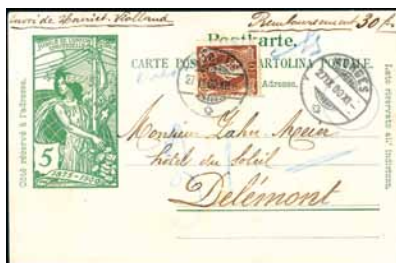 Envoi de Harriet-Holland
Remboursement 30 f
Postkarte.
CARTE POS CARTOLINA POSTALE.
Adresse.
27 IX 00 XI
MORGES
Côté réservé à l'adresse.
Lato riservato all' indirizzo.
5
1875-1900
Monsieur Zahn-Meier
hôtel du Soleil
Delémont